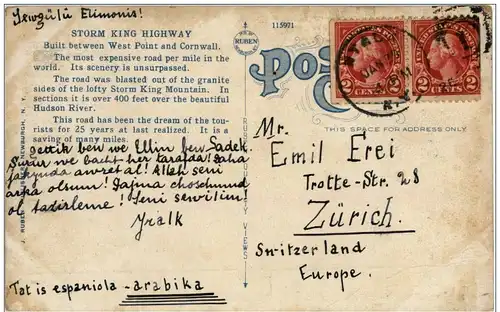 Jewgülü Elimonis!
STORM KING HIGHWAY
Built between West Point and Cornwall.
The most expensive road per mile in the
world. Its scenery is unsurpassed.
The road was blasted out of the granite
sides of the lofty Storm King Mountain. In
sections it is over 400 feet over the beautiful
Hudson River.
This road has been the dream of the tou-
rists for 25 years at last realized. It is a
saving of many miles.
gettik ben we Ulin ben Sadek.
we bacht her tarafda! Daha
jakynda awret al! Allah seni
olsun!
ol Seni sewilim!
Jralk
Tat is espaniola - arabika
115971
RUBEN
Post
2 CENTS 2
2 CENTS 2
N.Y.
THIS SPACE FOR ADDRESS ONLY
Mr.
Emil Erei
Trotte-Str. 28
Zürich.
Switzerland
Europe.
J. RUBEN NEWBURGH, N. Y.
VIEWS